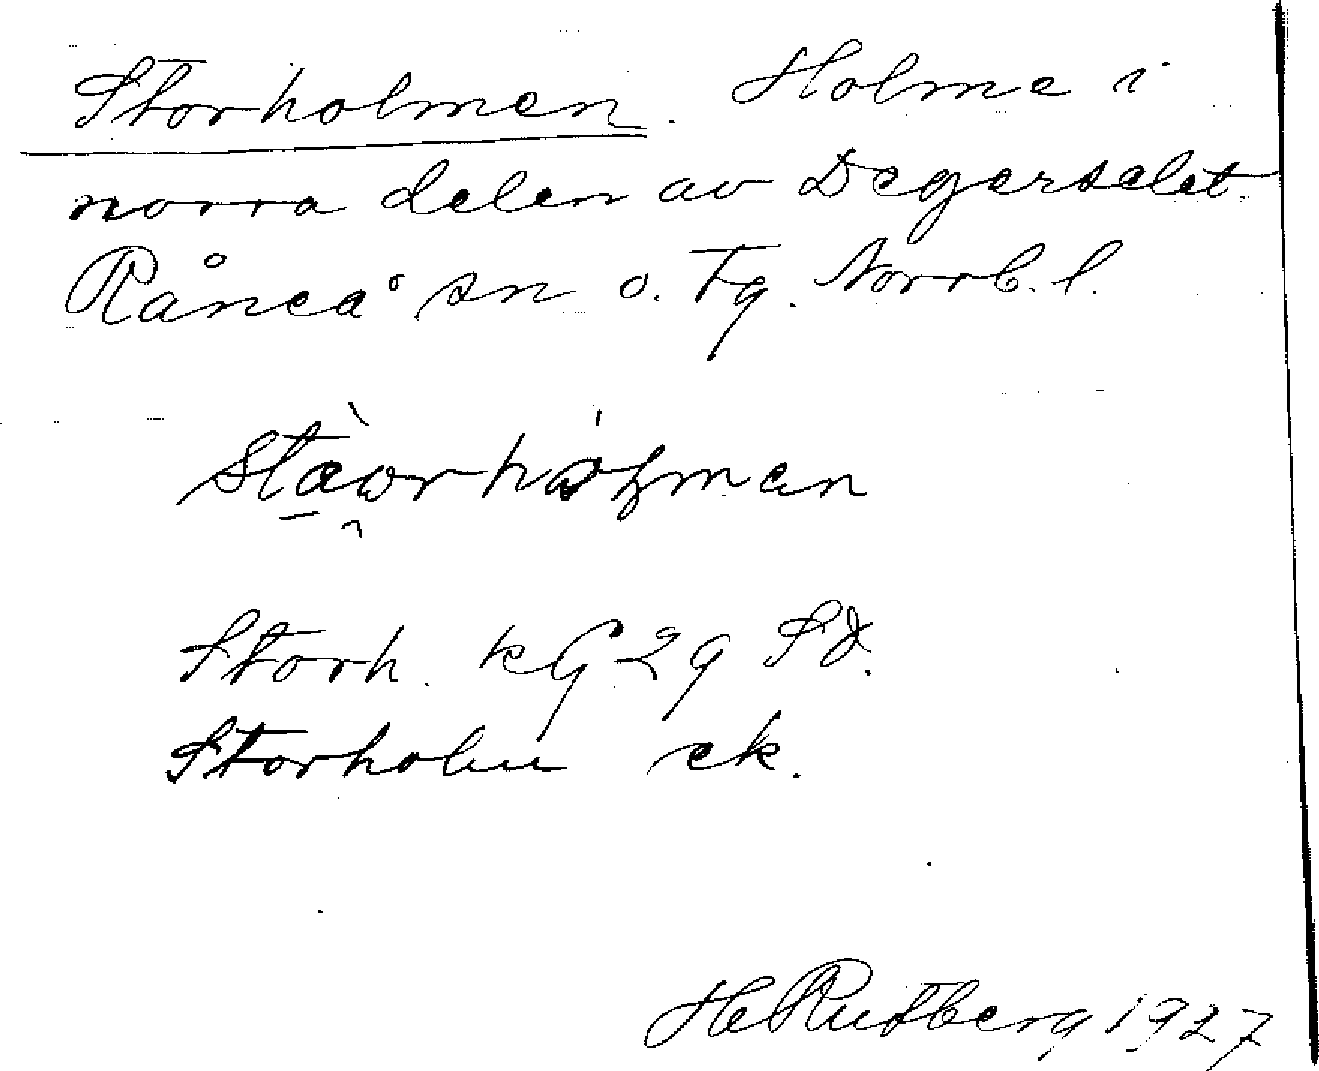 Storholmen. Holme i
norra delen av Degerselet.
Råneå sn o. Tg. Norrb. l.
Storh. kG 29 SV.
Storholm ek.
H Rutberg 1927